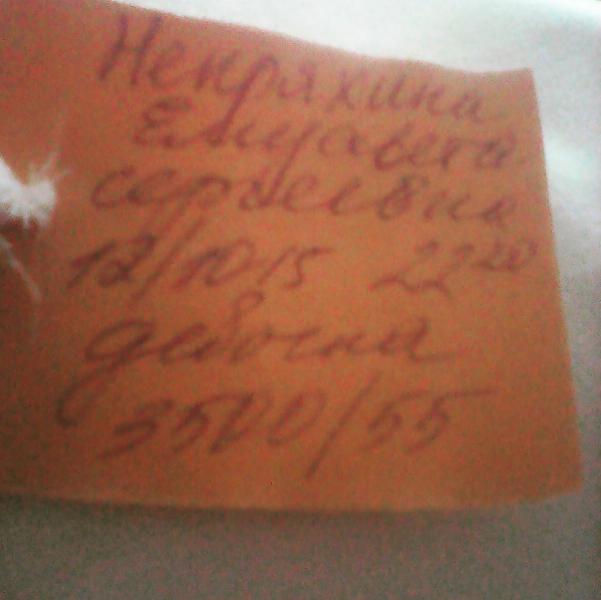 Непряхина
Елизавета
сергеевна
12/10 15 22 20
девочка
3500/55